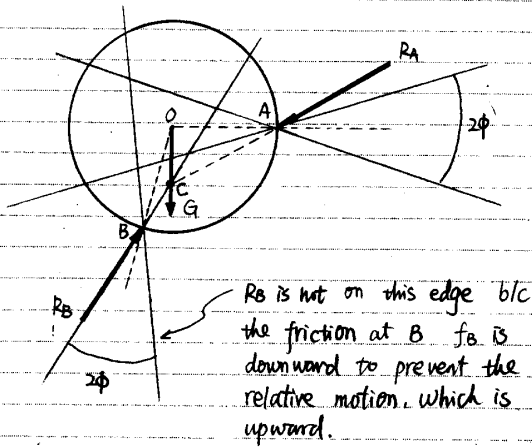 RA
A
2ϕ
O
C
G
B
RB
2ϕ
RB is not on this edge b/c
the friction at B fB is
downward to prevent the
relative motion, which is
upward.